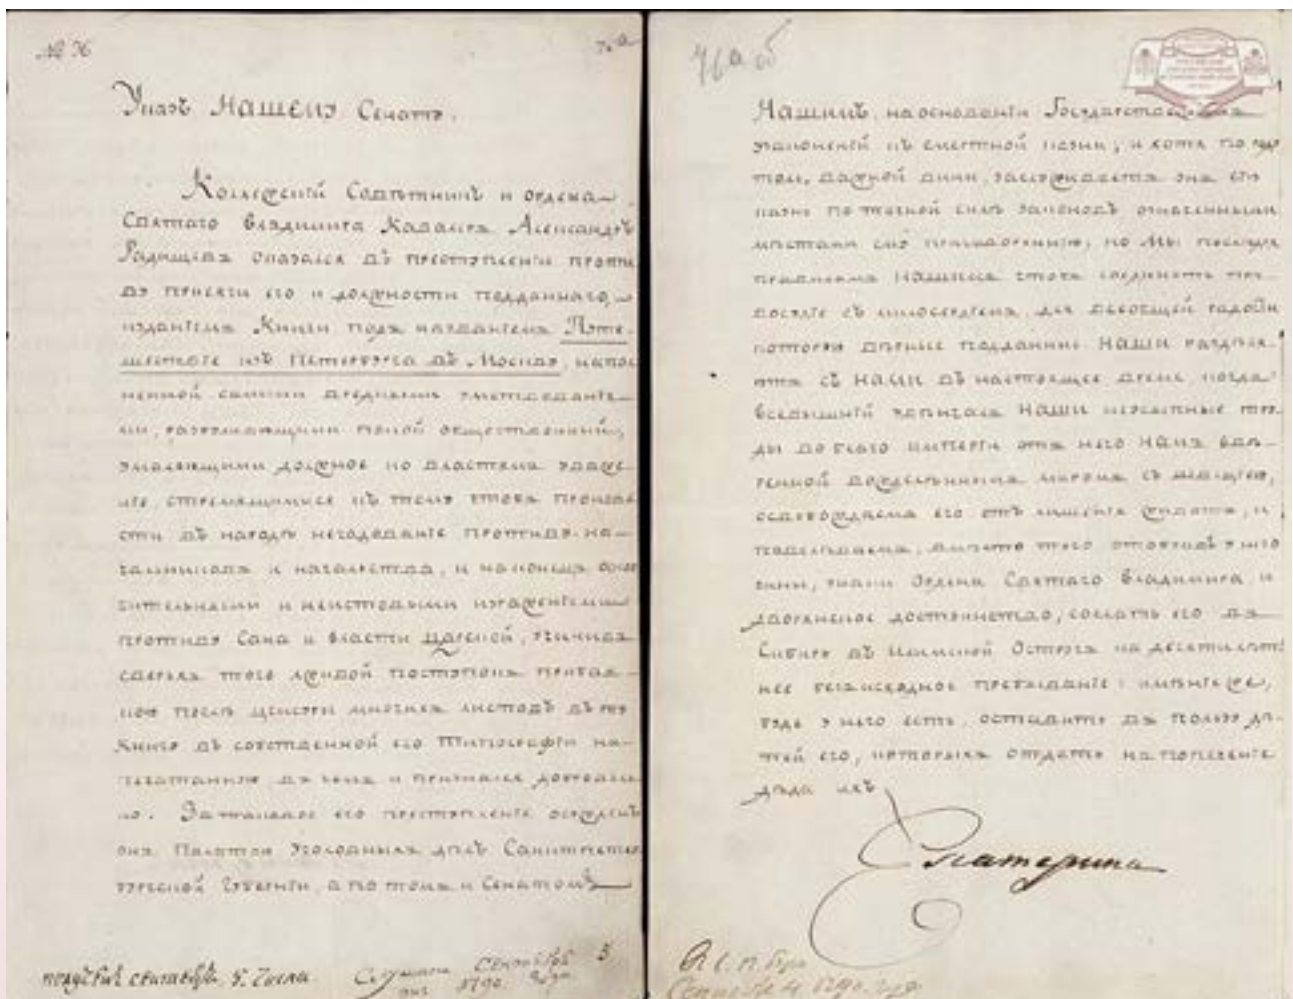 № 76
76 а
Указъ НАШЕМУ Сенату.
Коллежскій Совѣтникъ и ордена
Святаго Владимира Кавалеръ Александръ
Радищевъ оказался въ преступленіи проти
ву присяги его и должности подданнаго,
изданіемъ Книги подъ названіемъ Путе-
шествіе изъ Петербурга въ Москву, напол
ненной самыми вредными умствованія-
ми, разрушающими покой общественный,
умаляющими должное ко властямъ уваже-
ніе, стремящимися къ тому чтобъ произве
сти въ народѣ негодованіе противу на-
чальниковъ и начальства, и наконецъ оскор
бительными и неистовыми израженіями
противу Сана и власти Царской, учинивъ
сверьхъ того лживой поступокъ прибав-
кою послѣ ценсуры многихъ листовъ въ ту
Книгу въ собственной его Типографіи на-
печатанную въ чемъ и признался доброволь
но. За таковое его преступленіе осужденъ
онъ Палатою Уголовныхъ дѣлъ Санктпетер
бургской Губерніи, а по томъ и Сенатомъ
получен сентября 5. числа
Слушанъ Сентября 5
1790. года
76а об
НАШИМЪ, на основаніи Государственныхъ
узаконеній къ смертной казни, и хотя по роду
толь важной вины, заслуживаетъ онъ сію
казнь по точной силѣ законовъ означенными
мѣстами ему приговоренную, но МЫ послѣдуя
правиламъ НАШИМЪ чтобъ соединять пра-
восудіе съ милосердіемъ, для всеобщей радости
которую вѣрные подданные НАШИ раздѣля-
ютъ съ НАМИ въ настоящее время, когда
всевышній увѣнчалъ НАШИ неусыпные тру-
ды во благо имперіи отъ него НАМЪ ввѣ-
ренной вожделѣннымъ миромъ съ Швеціею,
освобождаемъ его отъ лишенія живота, и
повелѣваемъ, вмѣсто того отобравъ у него
чины, знаки Ордена Святаго Владимира и
дворянское достоинство, сослать его въ
Сибирь въ Илимской Острогъ на десятилѣт
нее безъисходное пребываніе: имѣніе же,
буде у него есть, оставить въ пользу дѣ-
тей его, которыхъ отдать на попеченіе
дѣда ихъ
Екатерина
Въ С. П. бурге
Сентября 4. 1790. года